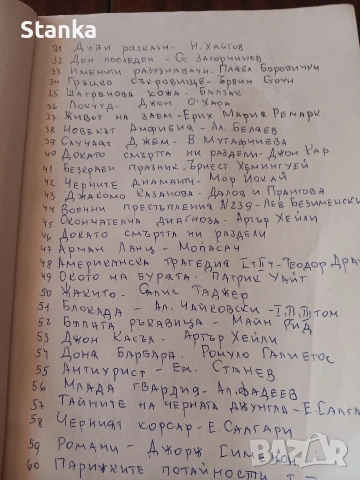 Stanka
31 Диви разкази - Н. Хайтов
32 Ден последен - С. Загорчинов
33 Именити разузнавачи - Павел Боровички
34 Гръцко съкровище - Ървин Стоун
35 Шагренова кожа - Балзак
36 Локууд - Джон О'Хара
37 Живот на заем - Ерих Мария Ремарк
38 Човекът амфибия - Ал. Беляев
39 Случаят Джем - В. Мутафчиева
40 Докато смъртта ни раздели - Джон Кар
41 Безкраен празник - Ърнест Хемингуей
42 Черните диаманти - Мор Йокай
43 Джакомо Казанова - Далов и Прангова
44 Военни престъпления №239 - Лев Безименски
45 Окончателна диагноза - Артър Хейли
46 Докато смъртта ни раздели
47 Арман Ланц - Мопасан
48 Американска трагедия I и II ч - Теодор Дра
49 Окото на бурата - Патрик Уайт
50 Жакито - Салис Таджер
51 Блокада - Ал. Чайковски - I, II, III том
52 Бялата ръкавица - Майн Рид
53 Джон Касъл - Артър Хейли
54 Доня Барбара - Ромуло Галиегос
55 Антихрист - Ем. Станев
56 Млада гвардия - Ал. Фадеев
57 Тайните на черната джунгла - Е. Салгари
58 Черният корсар - Е. Салгари
59 Романи - Джорж Сименон
60 Парижките потайности
BAZAR